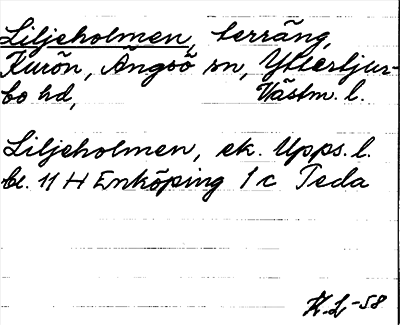 Liljeholmen, terräng,
Kurön, Ängsö sn, Yttertjur-
bo hd, Västm. l.
Liljeholmen, ek. Upps. l.
bl. 11 H Enköping 1 c Teda
K.L-58